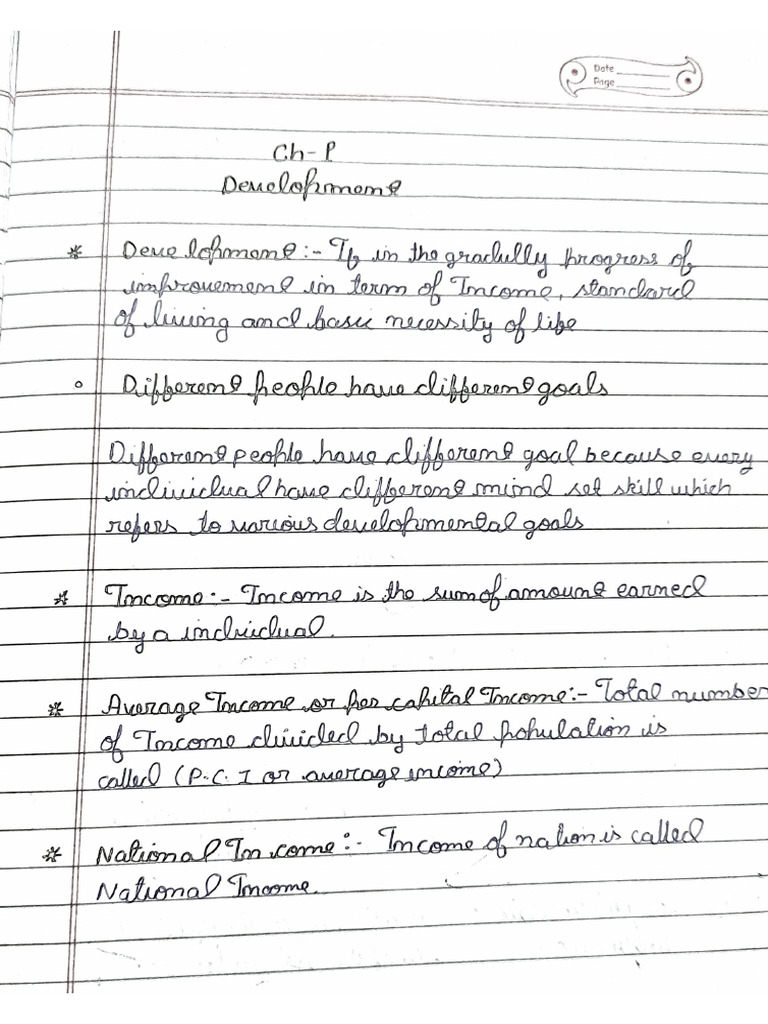 Date
Page
Ch-P
Development
* Development :- If in the gradully progress of
improvement in term of Income, standard
of living and basic necessity of life
° Different people have different goals
Different people have different goal because every
individual have different mind set skill which
refers to various developmental goals
* Income :- Income is the sum of amount earned
by a individual.
* Average Income or per capital Income :- Total number
of Income divided by total population is
called (P.C.I or average income)
* National Income :- Income of nation is called
National Income.